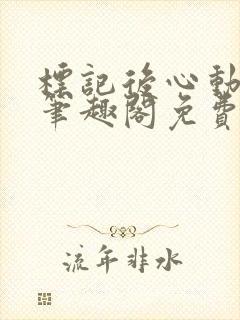 標記後心動
筆趣閣免費
流年非水